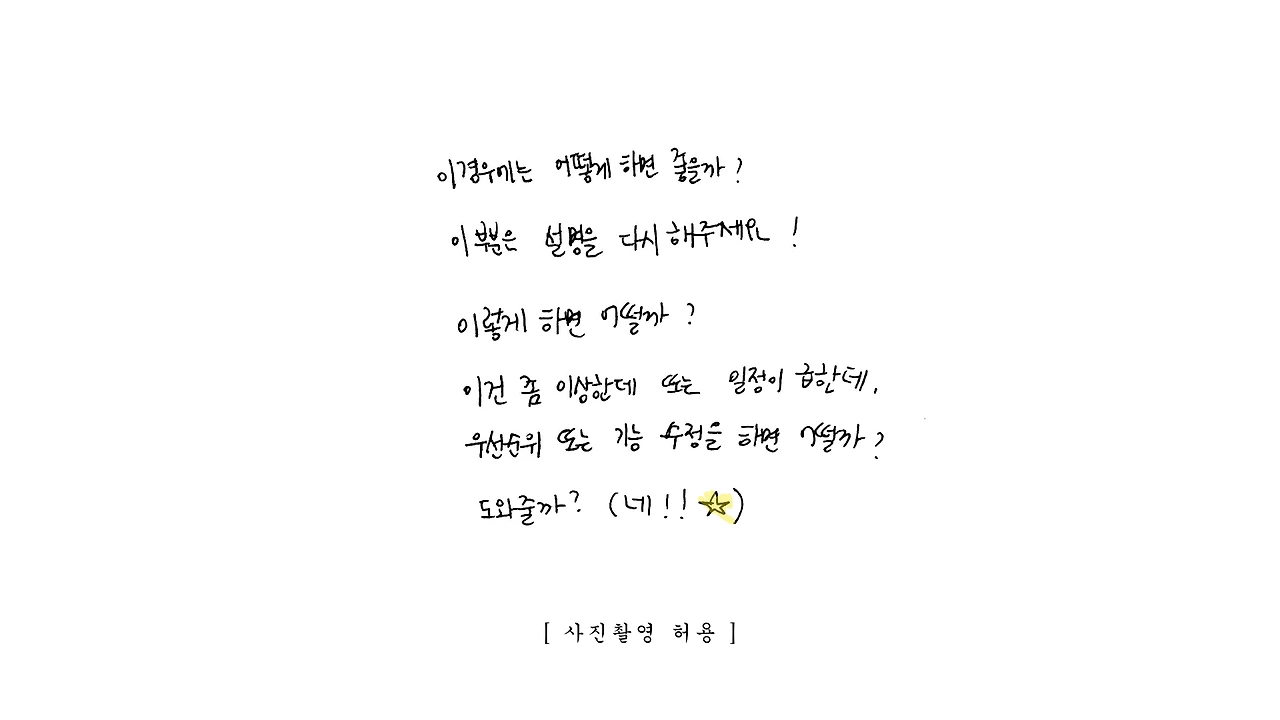 이경우에는 어떻게 하면 좋을까?
이 부분은 설명을 다시 해주세요!
이렇게 하면 어떨까?
이건 좀 이상한데 또는 일정이 급한데,
우선순위 또는 기능 수정을 하면 어떨까?
도와줄까? (네!! ☆)
[ 사진촬영 허용 ]